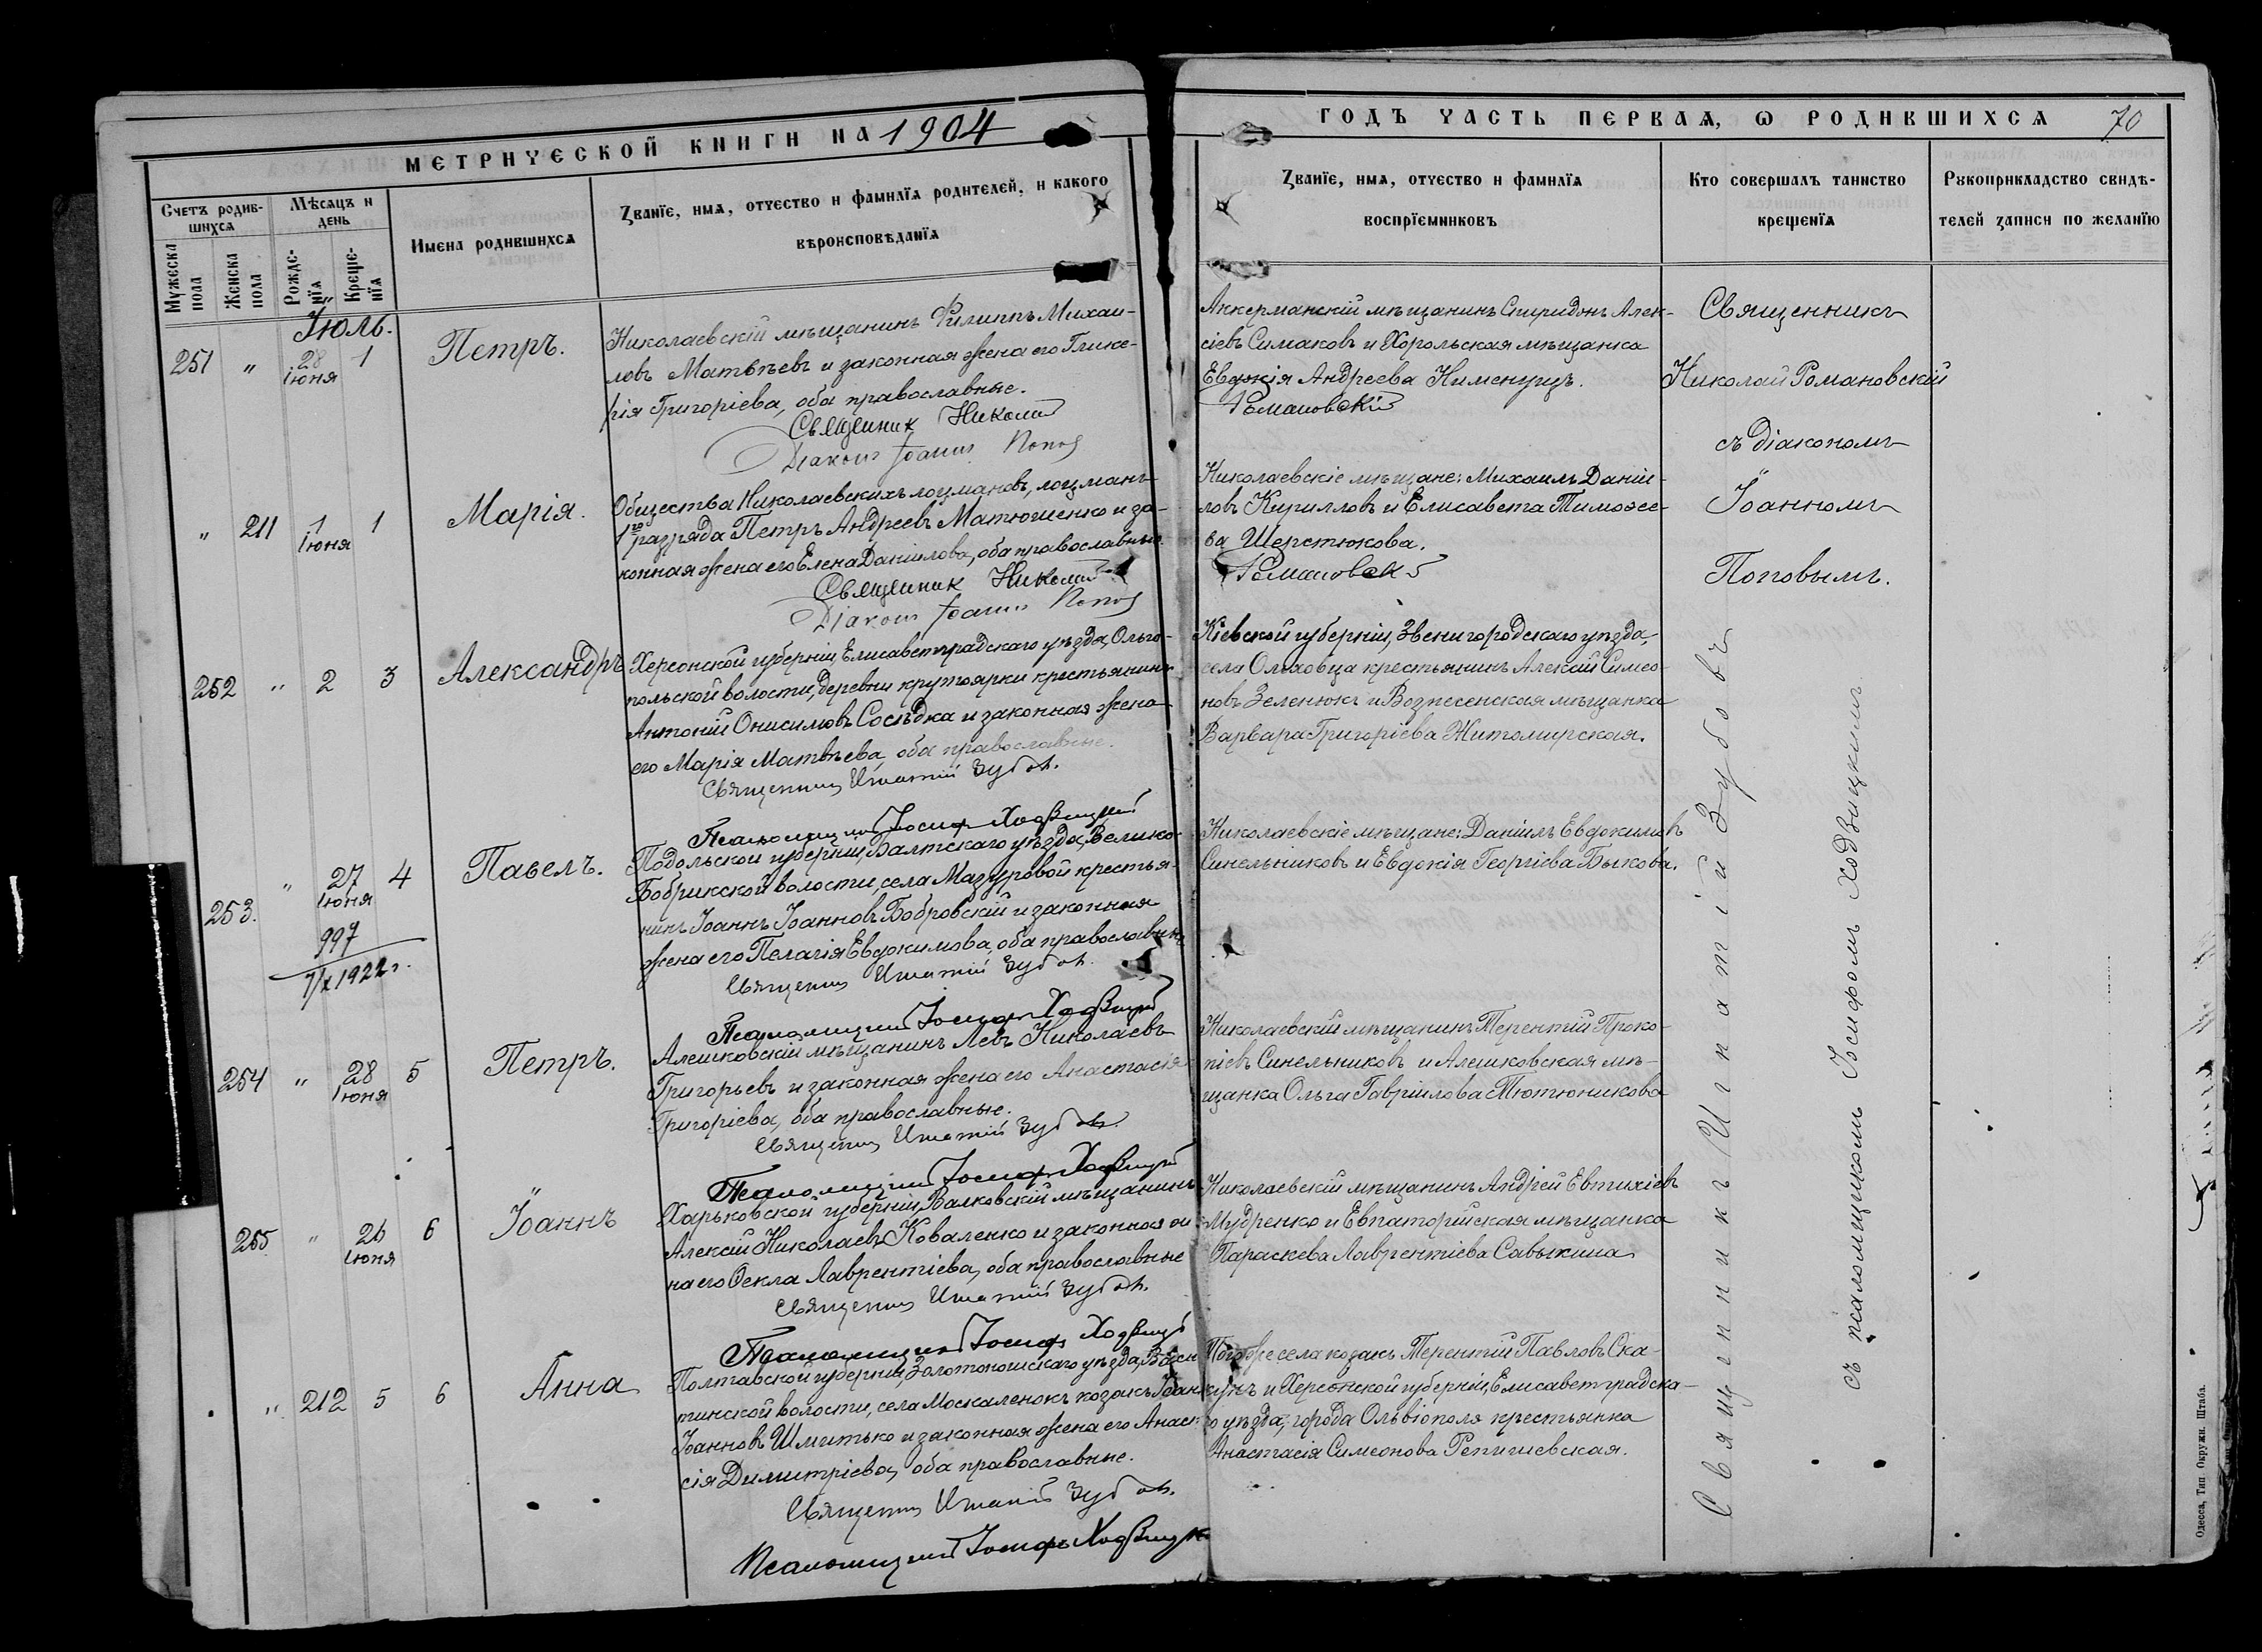 МЕТРИЧЕСКОЙ КНИГИ НА 1904
ГОДЪ ЧАСТЬ ПЕРВАЯ, Ѡ РОДИВШИХСЯ 70
Счетъ родив-
шихся
Мужеска
пола
Женска
пола
Мѣсяцъ и
день
Рожде-
нїя
Креще-
нїя
Имена родившихся
Званїе, имя, отчество и фамилїя родителей, и какого
вѣроисповѣданїя
Званїе, имя, отчество и фамилїя
воспрїемниковъ
Кто совершалъ таинство
крещенїя
Рукоприкладство свидѣ-
телей записи по желанїю
Іюль.
251 " 28 Іюня 1
Петръ.
Николаевскій мѣщанинъ Филиппъ Михаи-
ловъ Матвѣевъ и законная жена его Глике-
рія Григоріева, оба православные.
Священник Николай
Діаконъ Іоаннъ Попов
Аккерманскій мѣщанинъ Спиридонъ Алек-
сіевъ Симаковъ и Хорольская мѣщанка
Евдокія Андреева
Романовскій
Священникъ
Николай Романовскій
съ діакономъ
Іоанномъ
Поповымъ.
" 211 1 Іюня 1
Марія.
Общества Николаевскихъ лоцмановъ, лоцманъ
1го разряда Петръ Андреевъ Матюшенко и за-
конная жена его Елена Даніилова, оба православные.
Священник Николай
Діаконъ Іоаннъ Попов
Николаевскіе мѣщане: Михаилъ Даніи-
ловъ Кирилловъ и Елисавета Тимоѳее-
ва Шерстюкова.
Романовскій
252 " 2 3
Александръ
Херсонской губерніи, Елисаветградскаго уѣзда, Ольго-
польской волости, деревни крутоярки крестьянинъ
Антоній Онисимовъ Сосѣдка и законная жена
его Марія Матвѣева, оба православные.
Священникъ Игнатій Зубовъ.
Псаломщикъ Іосифъ Ходвицкій
Кіевской губерніи, Звенигородскаго уѣзда,
села Ольховца крестьянинъ Алексій Симео-
новъ Зеленюкъ и Вознесенская мѣщанка
Варвара Григоріева Житомирская.
Священникъ Игнатій Зубовъ
съ псаломщикомъ Іосифомъ Ходвицкимъ
253. " 27 Іюня 4
997
7/X 1922 г.
Павелъ.
Подольской губерніи, Балтскаго уѣзда, Велико-
Бобрикской волости, села Мазуровой крестья-
нинъ Іоаннъ Іоанновъ Бобровскій и законная
жена его Пелагія Евдокимова, оба православные
Священникъ Игнатій Зубовъ.
Псаломщикъ Іосифъ Ходвицкій
Николаевскіе мѣщане: Даніилъ Евдокимовъ
Синельниковъ и Евдокія Георгіева Быкова.
254 " 28 Іюня 5
Петръ.
Алешковскій мѣщанинъ Левъ Николаевъ
Григорьевъ и законная жена его Анастасія
Григоріева, оба православные.
Священникъ Игнатій Зубовъ.
Псаломщикъ Іосифъ Ходвицкій
Николаевскій мѣщанинъ Терентій Проко-
піевъ Синельниковъ и Алешковская мѣ-
щанка Ольга Гавріилова Тютюникова
255 " 26 Іюня 6
Іоаннъ
Харьковской губерніи, Валковскій мѣщанинъ
Алексій Николаевъ Коваленко и законная же-
на его Ѳекла Лаврентіева, оба православные
Священникъ Игнатій Зубовъ.
Псаломщикъ Іосифъ Ходвицкій
Николаевскій мѣщанинъ Андрей Евтихіевъ
Мудренко и Евпаторійская мѣщанка
Параскева Лаврентіева Савыкина
" 212 5 6
Анна
Полтавской губерніи, Золотоношскаго уѣзда,
тинской волости, села Москаленокъ козакъ Іоаннъ
Іоанновъ Шмитько и законная жена его Анаста-
сія Димитріева, оба православные.
Священникъ Игнатій Зубовъ.
Псаломщикъ Іосифъ Ходвицкій
села козакъ Терентій Павловъ Ска-
кунъ и Херсонской губерніи, Елисаветградска-
го уѣзда, города Ольвіополя крестьянка
Анастасія Симеонова
Одесса, Тип. Окружн. Штаба.